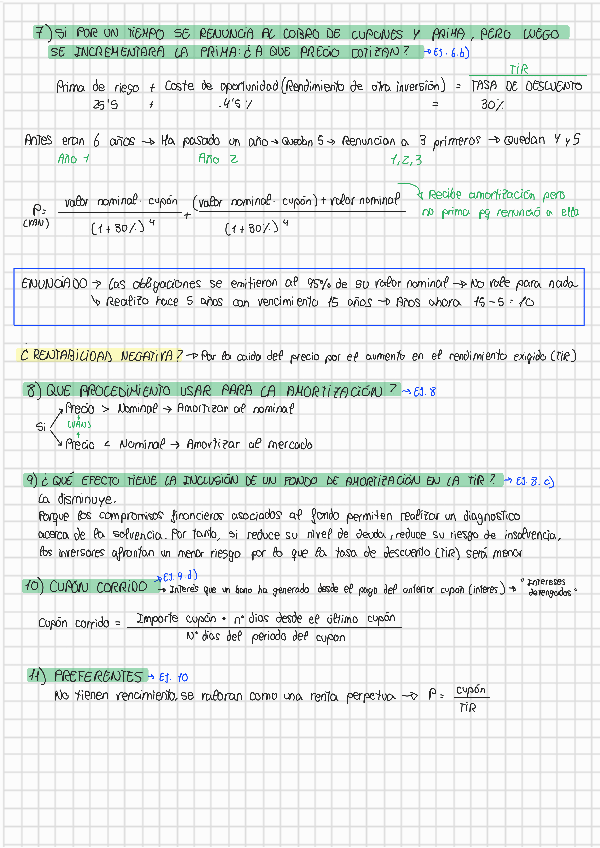 7) SI POR UN TIEMPO SE RENUNCIA AL COBRO DE CUPONES Y PRIMA, PERO LUEGO
SE INCREMENTARA LA PRIMA: ¿A QUE PRECIO COTIZAN? → EJ. 6.b)
TIR
Prima de riesgo + Coste de oportunidad (Rendimiento de otra inversión) = TASA DE DESCUENTO
25'5 + 4'5% = 30%
Antes eran 6 años → Ha pasado un año → Quedan 5 → Renuncian a 3 primeros → Quedan 4 y 5
Año 1 Año 2 1,2,3
P= (VAN) valor nominal · cupón / (1+30%)^4 + (valor nominal · cupón) + valor nominal / (1+30%)^4
Recibe amortización pero
no prima pq renunció a ella
ENUNCIADO → Las obligaciones se emitieron al 95% de su valor nominal → No vale para nada
↳ Realizo hace 5 años con vencimiento 15 años → Años ahora 15-5=10
¿RENTABILIDAD NEGATIVA? → Por la caida del precio por el aumento en el rendimiento exigido (TIR)
8) QUE PROCEDIMIENTO USAR PARA LA AMORTIZACIÓN? → EJ. 8
Si
Precio > Nominal → Amortizar al nominal
(VAN)
Precio < Nominal → Amortizar al mercado
9) ¿QUÉ EFECTO TIENE LA INCLUSIÓN DE UN FONDO DE AMORTIZACIÓN EN LA TIR? → EJ. 8. c)
La disminuye.
Porque los compromisos financieros asociados al fondo permiten realizar un diagnostico
acerca de la solvencia. Por tanto, si reduce su nivel de deuda, reduce su riesgo de insolvencia,
los inversores afrontan un menor riesgo por lo que la tasa de descuento (TIR) será menor
10) CUPÓN CORRIDO → EJ. 9. d)
→ Interés que un bono ha generado desde el pago del anterior cupón (interes) → "Intereses devengados"
Cupón corrido = Importe cupón · nº dias desde el último cupón / Nº dias del periodo del cupon
11) PREFERENTES → EJ. 10
No tienen vencimiento, se valoran como una renta perpetua → P = cupón / TIR